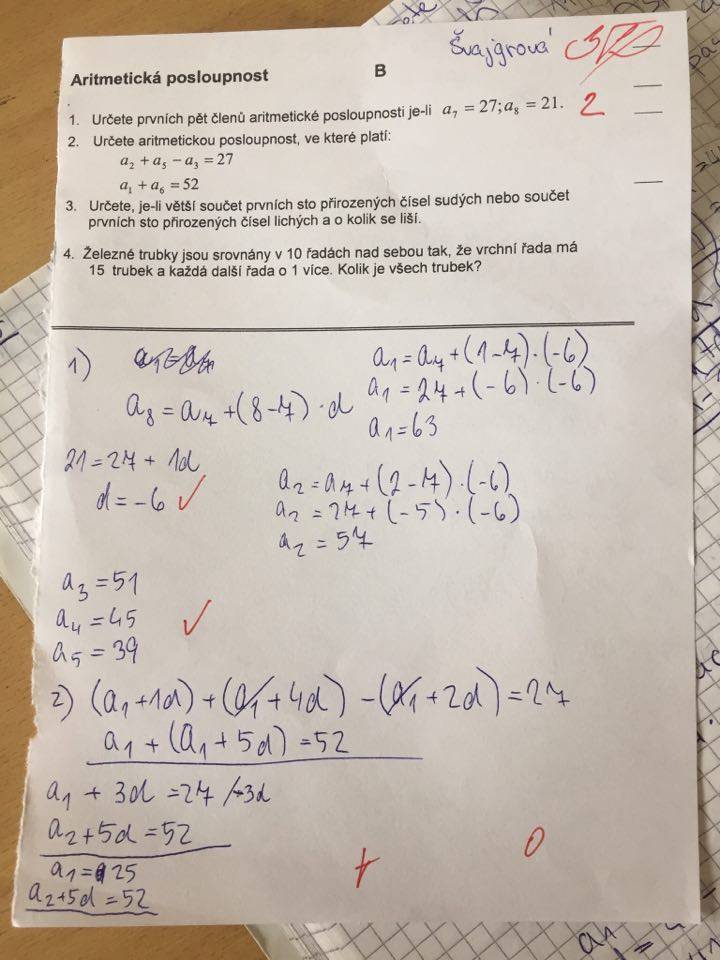 Švajgrová
Aritmetická posloupnost B
1. Určete prvních pět členů aritmetické posloupnosti je-li a₇ = 27; a₈ = 21. 2
2. Určete aritmetickou posloupnost, ve které platí:
a₂ + a₅ − a₃ = 27
a₁ + a₆ = 52
3. Určete, je-li větší součet prvních sto přirozených čísel sudých nebo součet
prvních sto přirozených čísel lichých a o kolik se liší.
4. Železné trubky jsou srovnány v 10 řadách nad sebou tak, že vrchní řada má
15 trubek a každá další řada o 1 více. Kolik je všech trubek?
1)
a₈ = a₇ + (8−7) · d
21 = 27 + 1d
d = −6 ✓
a₁ = a₇ + (1−7) · (−6)
a₁ = 27 + (−6) · (−6)
a₁ = 63
a₂ = a₇ + (2−7) · (−6)
a₂ = 27 + (−5) · (−6)
a₂ = 57
a₃ = 51
a₄ = 45 ✓
a₅ = 39
2) (a₁ + 1d) + (a₁ + 4d) − (a₁ + 2d) = 27
a₁ + (a₁ + 5d) = 52
a₁ + 3d = 27 /−3d
a₂ + 5d = 52
a₁ = 25
a₂ + 5d = 52
0